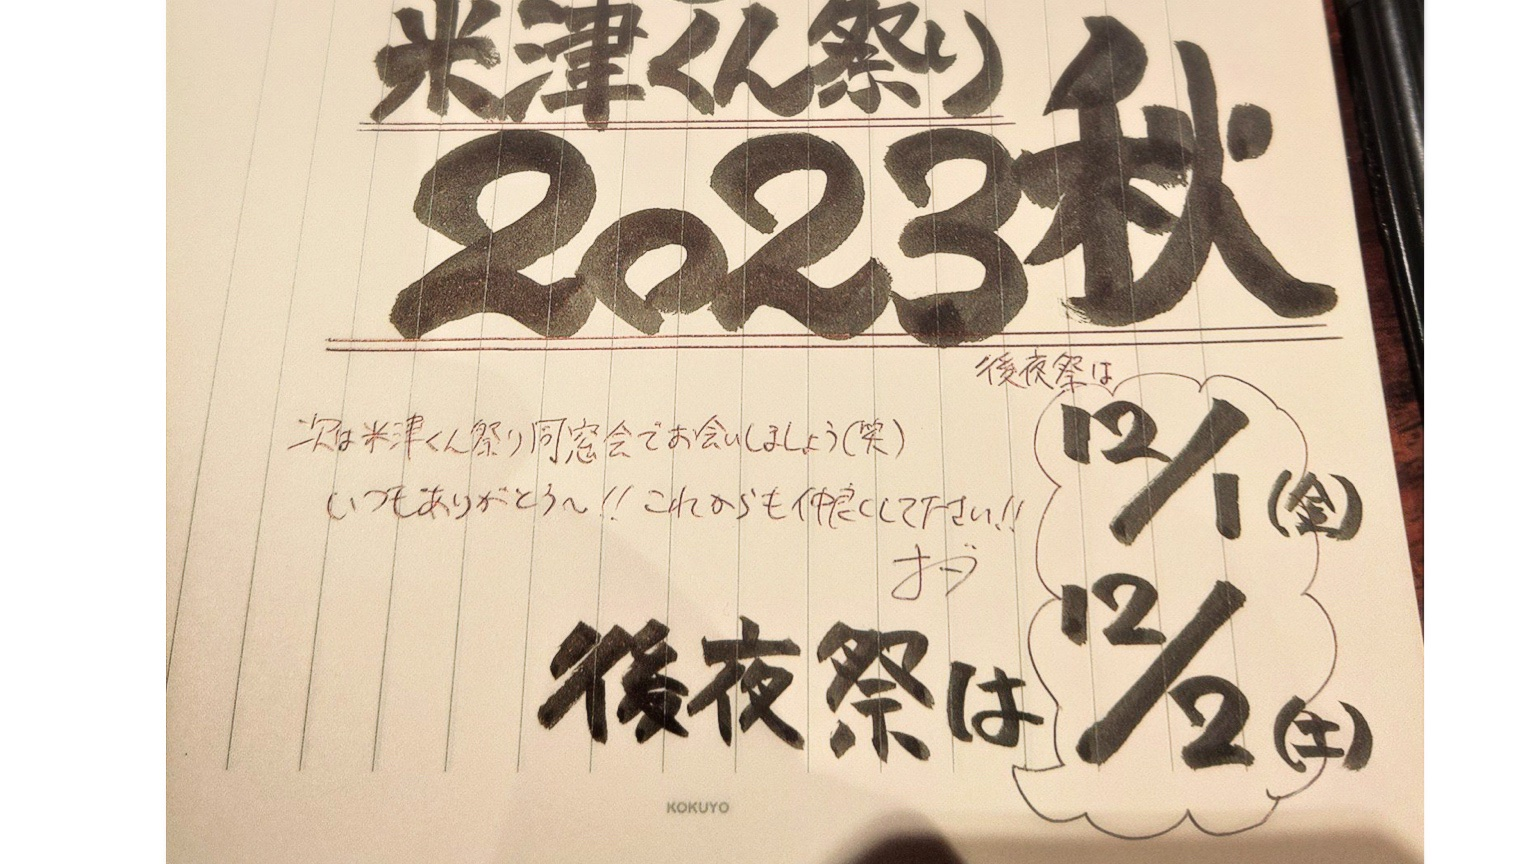 米津くん祭り
2023秋
後夜祭は
12/1(金)
次は米津くん祭り同窓会でお会いしましょう(笑)
いつもありがとう〜!!これからも仲良くして下さい!!
12/2(土)
後夜祭は
KOKUYO